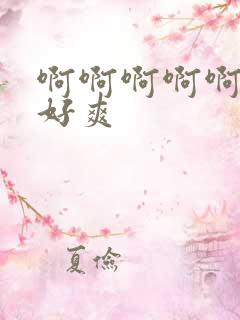 啊啊啊啊啊
好爽
夏俭